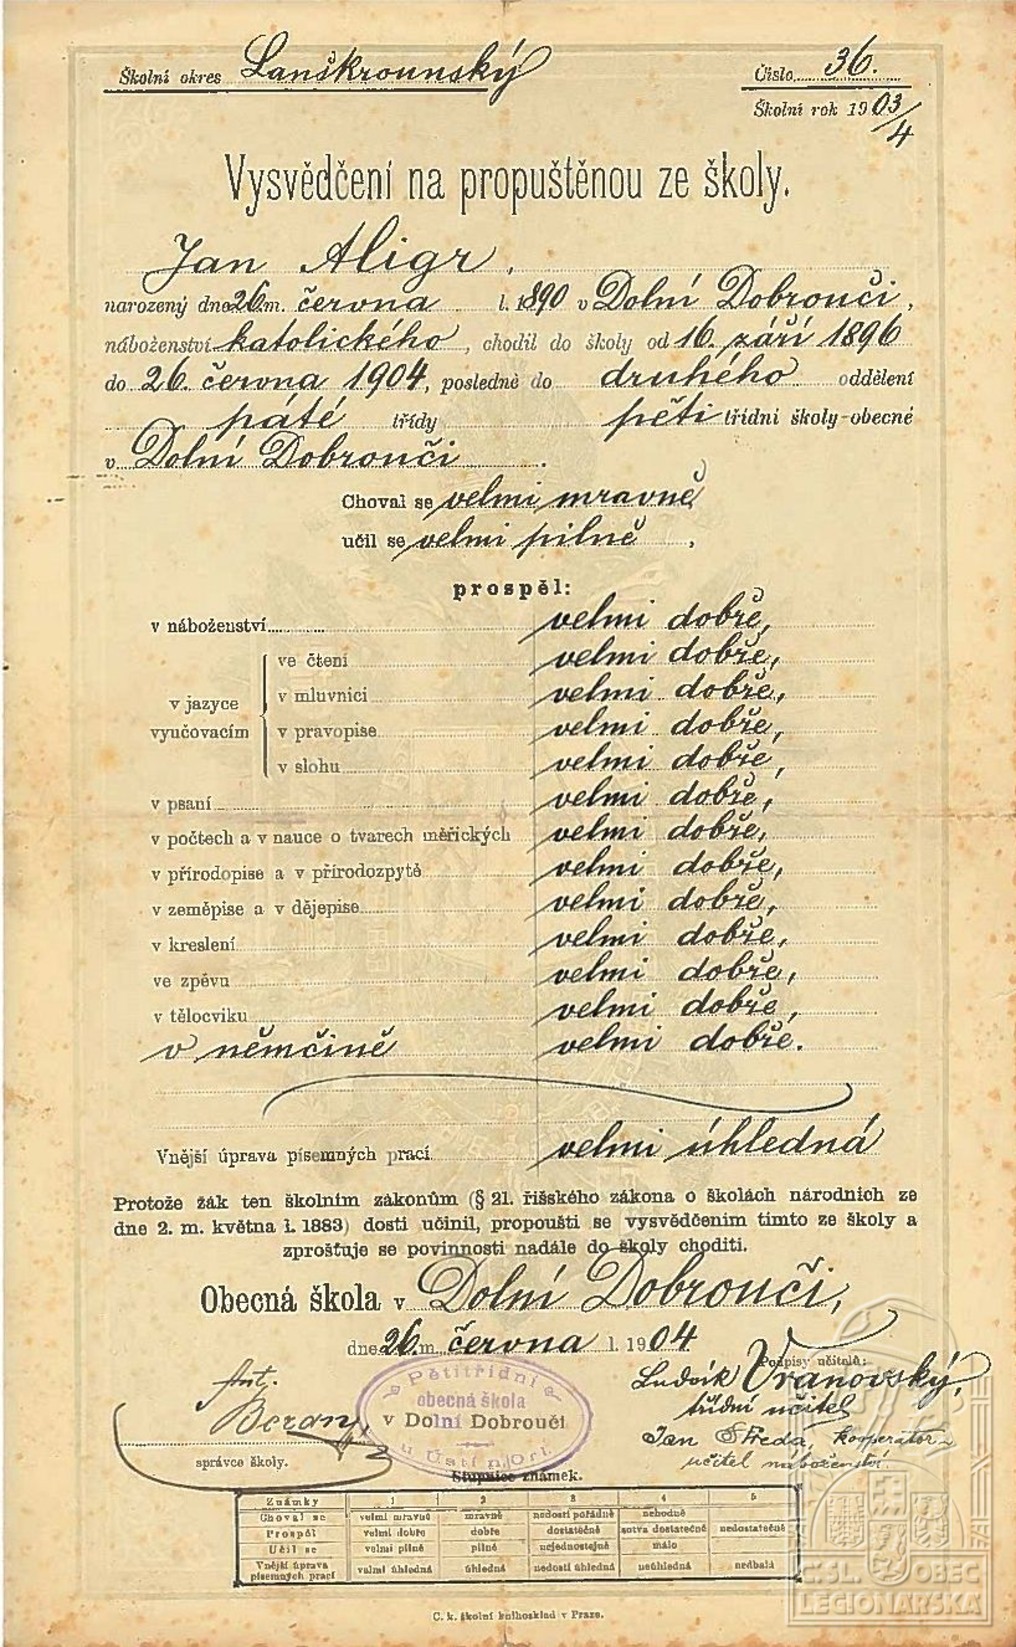 Školní okres Lanškrounský
Číslo 36.
Školní rok 1903/4
Vysvědčení na propuštěnou ze školy.
Jan Aligr,
narozený dne 26. m. června l. 1890 v Dolní Dobrouči,
náboženství katolického, chodil do školy od 16. září 1896
do 26. června 1904, posledně do druhého oddělení
páté třídy pěti třídní školy obecné
v Dolní Dobrouči.
Choval se velmi mravně,
učil se velmi pilně,
prospěl:
v náboženství velmi dobře,
v jazyce vyučovacím
ve čtení velmi dobře,
v mluvnici velmi dobře,
v pravopise velmi dobře,
v slohu velmi dobře,
v psaní velmi dobře,
v počtech a v nauce o tvarech měřických velmi dobře,
v přírodopise a v přírodozpytě velmi dobře,
v zeměpise a v dějepise velmi dobře,
v kreslení velmi dobře,
ve zpěvu velmi dobře,
v tělocviku velmi dobře,
v němčině velmi dobře.
Vnější úprava písemných prací velmi úhledná
Protože žák ten školním zákonům (§ 21. říšského zákona o školách národních ze
dne 2. m. května l. 1883) dosti učinil, propouští se vysvědčením tímto ze školy a
zprošťuje se povinnosti nadále do školy choditi.
Obecná škola v Dolní Dobrouči,
dne 26. m. června l. 1904
Podpisy učitelů:
Ant. Beran
správce školy.
Pětitřídní
obecná škola
v Dolní Dobrouči
u Ústí n. Orl.
Ludvík Vranovský,
třídní učitel
Jan Středa, kooperator
učitel náboženství.
Stupnice známek.
Známky 1 2 3 4 5
Choval se velmi mravně mravně nedosti pořádně nehodně
Prospěl velmi dobře dobře dostatečně sotva dostatečně nedostatečně
Učil se velmi pilně pilně nejednostejně málo
Vnější úprava písemných prací velmi úhledná úhledná nedosti úhledná neúhledná nedbalá
C. k. školní knihosklad v Praze.
Č.SL. OBEC
LEGIONÁŘSKÁ